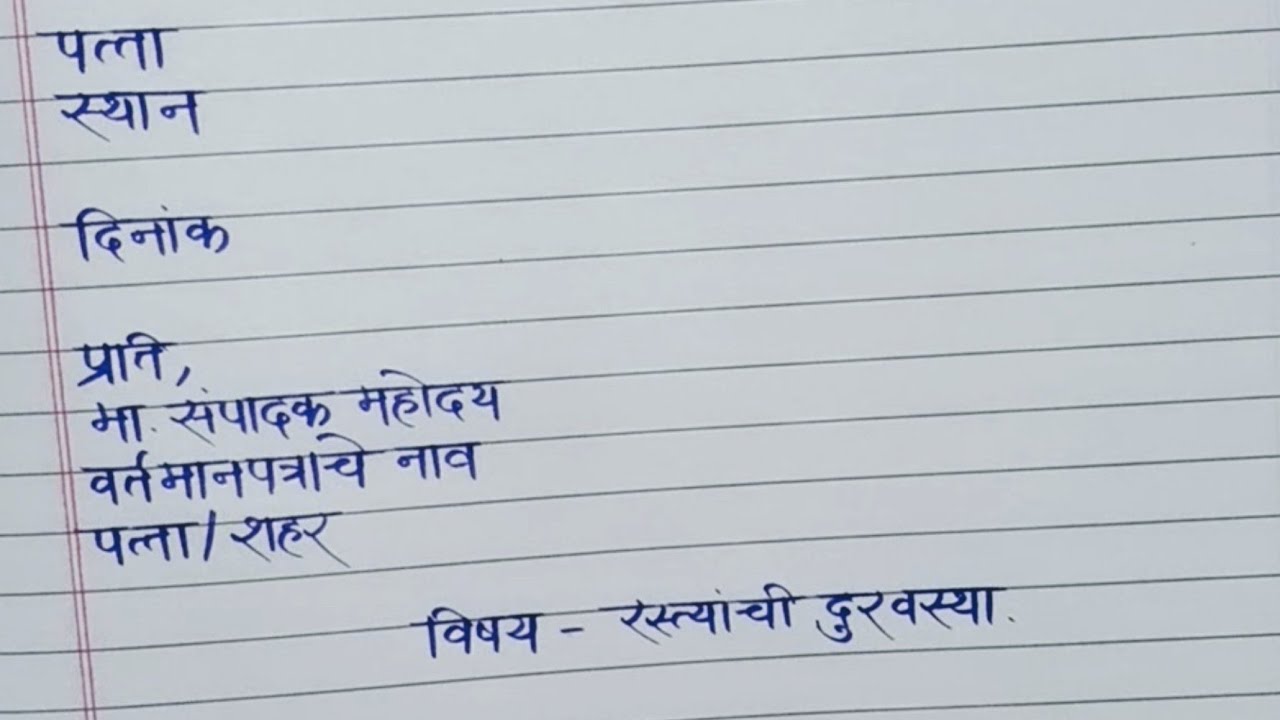 पत्ता
स्थान
दिनांक
प्रति,
मा. संपादक महोदय
वर्तमानपत्राचे नाव
पत्ता/शहर
विषय - रस्त्यांची दुरवस्था.